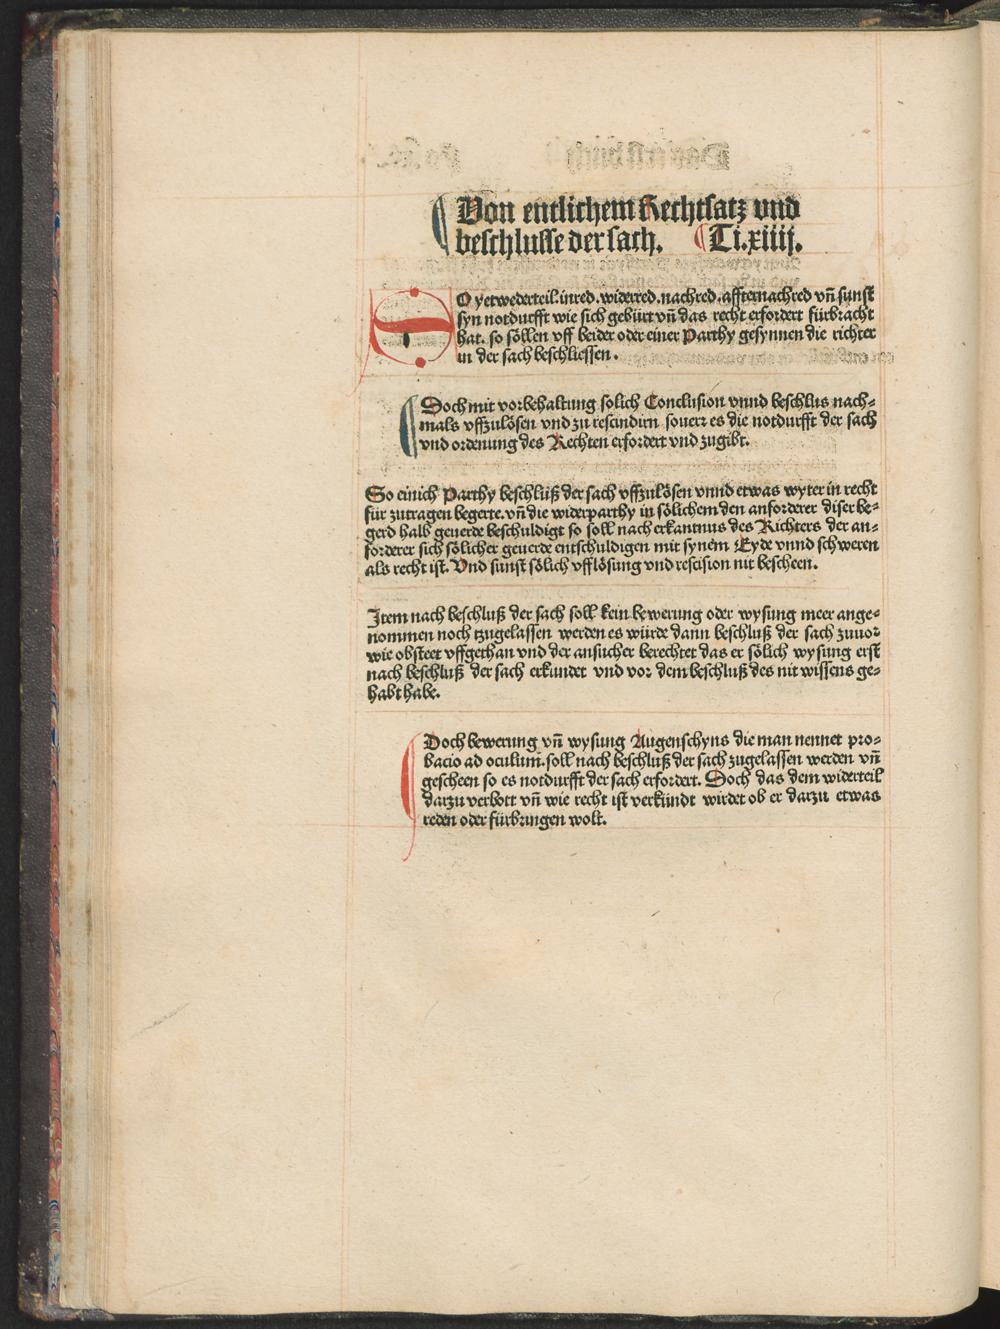 Von entlichem Rechtsatz vnd
beschlusse der sach. Ti.xiiij.
SO yetwederteil.inred.widerred.nachred.affternachred vñ sunst
syn notdurfft wie sich gebürt vñ das recht erfordert fürbracht
hat. so söllen vff beider oder einer Parthy gesynnen die richter
in der sach beschliessen.
Doch mit vorbehaltung solich Conclusion vnnd beschlus nach=
mals vffzulösen vnd zu rescindirn souerr es die notdurfft der sach
vnd ordenung des Rechten erfordert vnd zugibt.
So einich Parthy beschlüß der sach vffzulösen vnnd etwas wyter in recht
für zutragen begerte. vñ die widerparthy in sölichem den anforderer diser be=
gerd halb geuerde beschuldigt so soll nach erkantnus des Richters der an=
forderer sich sölicher geuerde entschuldigen mit synem Eyde vnnd schweren
als recht ist. Vnd sunst sölich vfflösung vnd rescision nit bescheen.
Item nach beschluß der sach soll kein bewerung oder wysung meer ange=
nommen noch tzugelassen werden es würde dann beschluß der sach zuuor
wie obsteet vffgethan vnd der ansucher berechtet das er sölich wysung erst
nach beschluß der sach erkundet vnd vor dem beschluß des nit wissens ge=
habt habe.
Doch bewerung vñ wysung Augenschyns die man nennet pro=
bacio ad oculum. soll nach beschluß der sach zugelassen werden vñ
gescheen so es notdurfft der sach erfordert. Doch das dem widerteil
darzu verbott vñ wie recht ist verkündt wirdet ob er darzu etwas
reden oder fürbringen wolt.